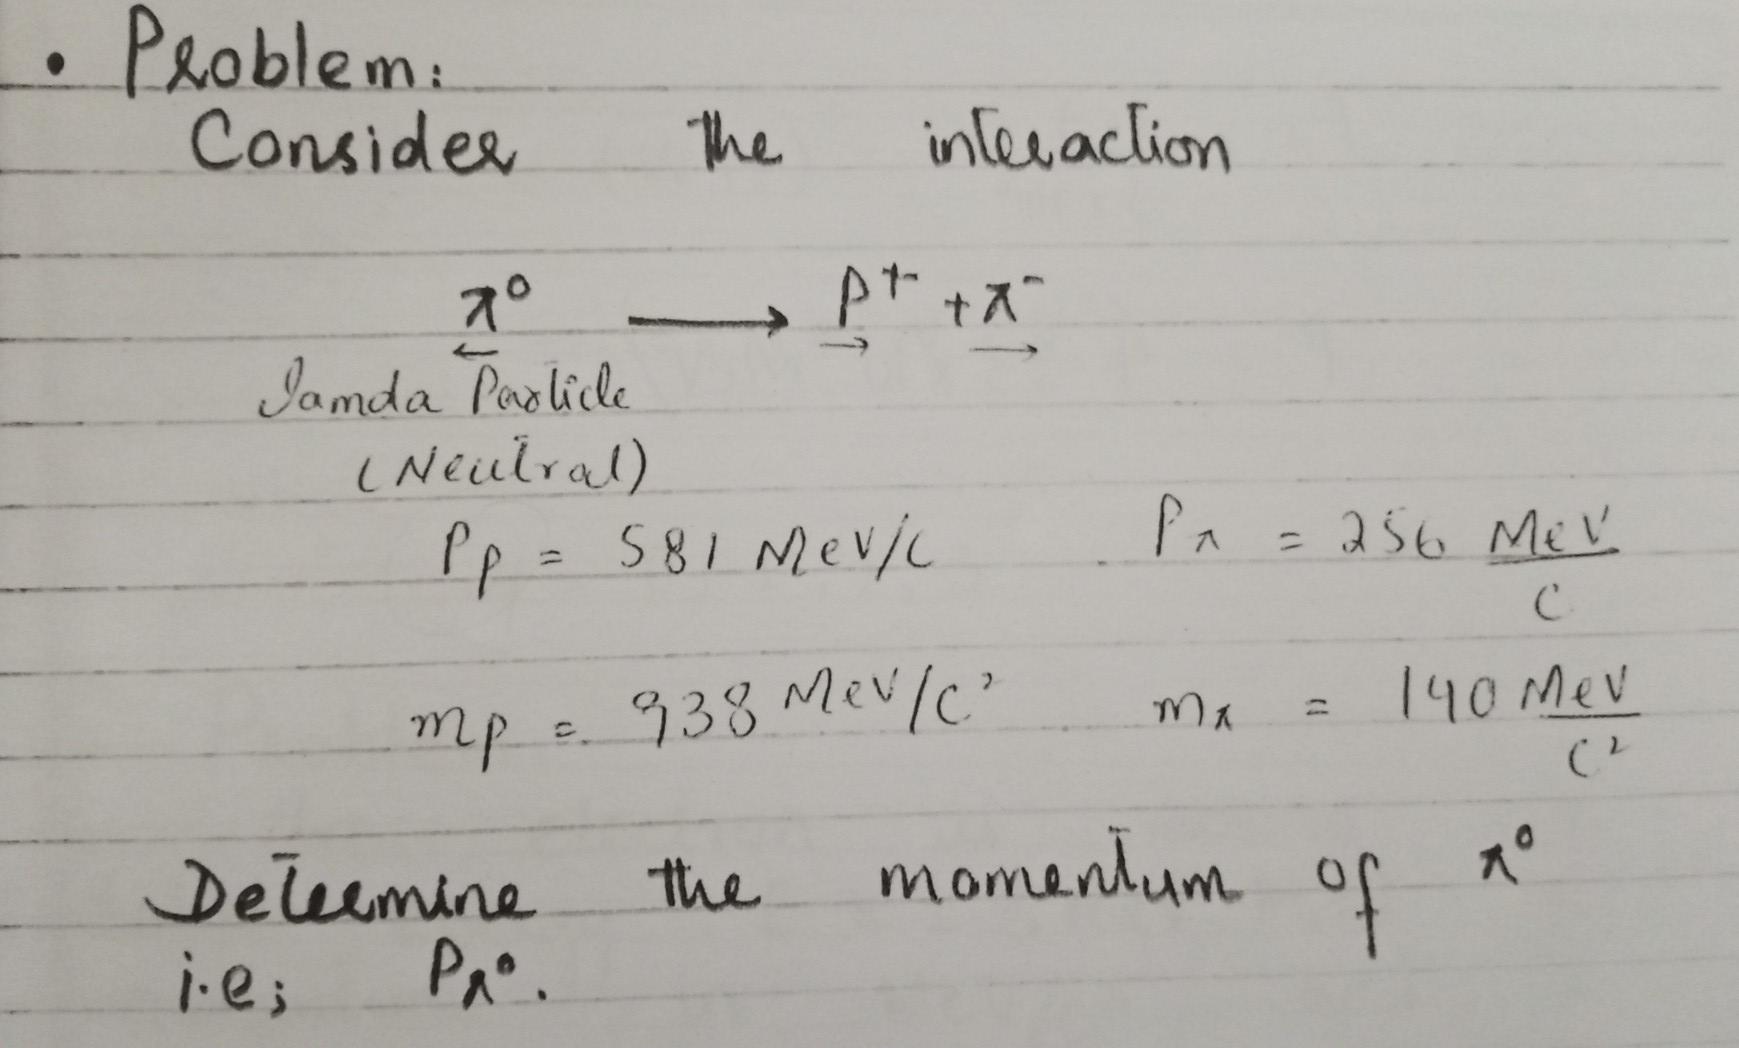 • Problem:
Consider the interaction
π⁰ ⟶ p⁺ + π⁻
← → →
Jamda Particle
(Neutral)
Pp = 581 MeV/c Pπ = 256 MeV/c
mp = 938 MeV/c² mπ = 140 MeV/c²
Determine the momentum of π⁰
i.e; Pπ⁰.